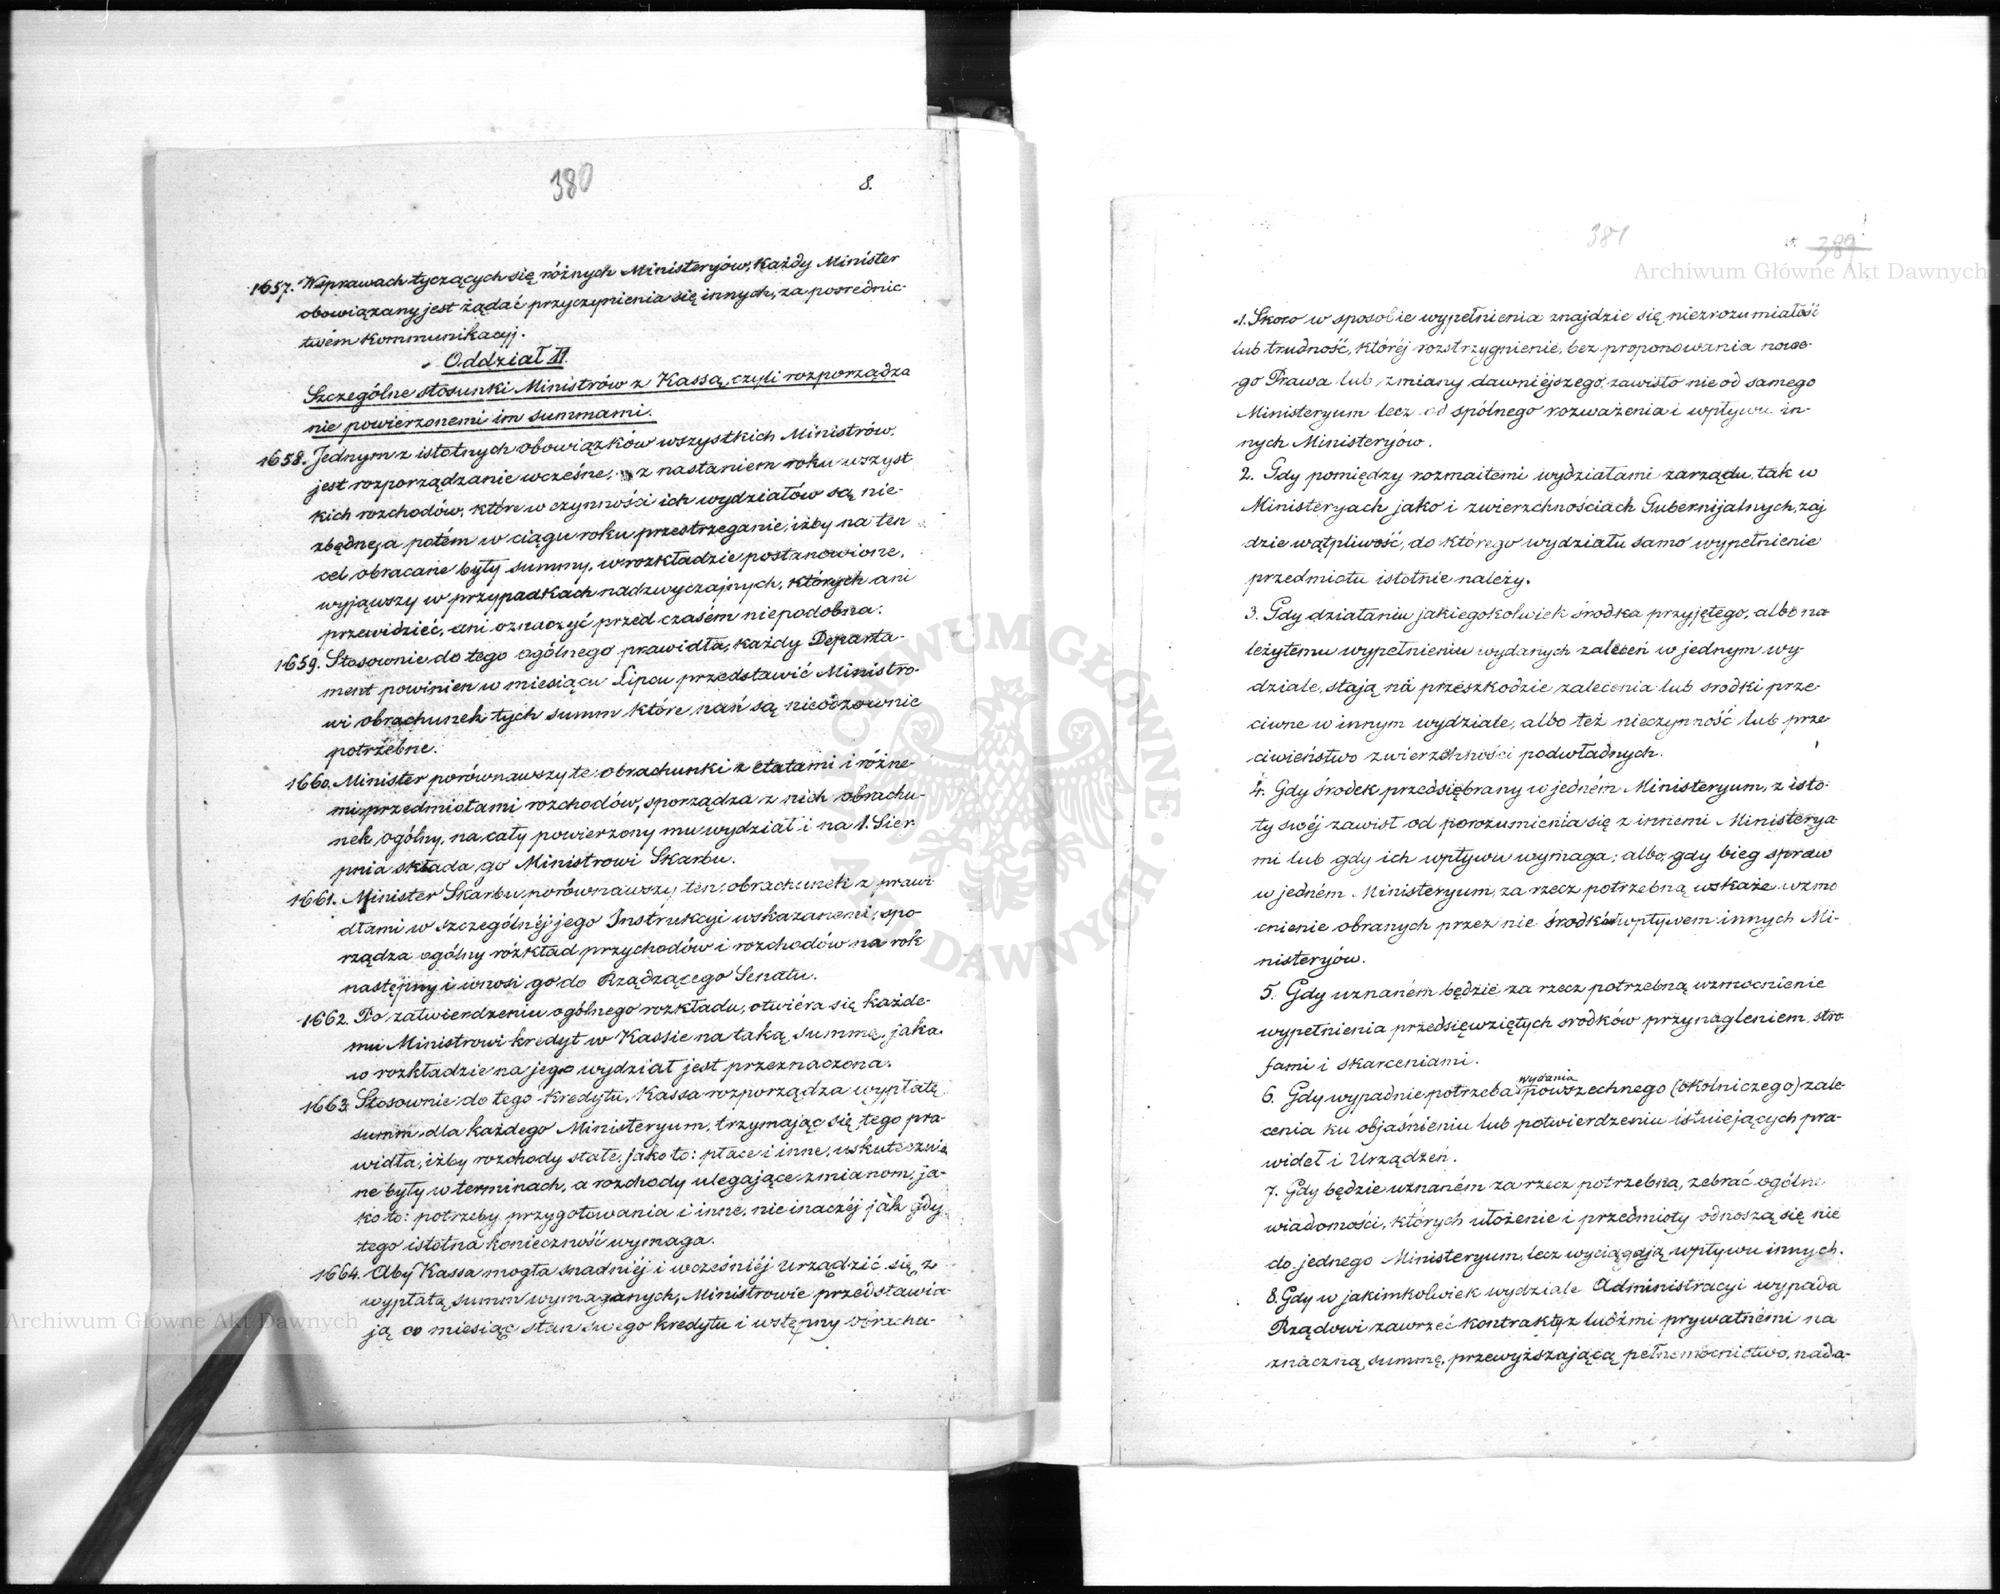 380
8.
1657. W sprawach tyczących się różnych Ministeryów, Każdy Minister
obowiązany jest żądać przyczynienia się innych, za posrednic-
twem Kommunikacyj.
Oddział II.
Szczególne stosunki Ministrów z Kassą, czyli rozporządza
nie powierzonemi im summami.
1658. Jednym z istotnych obowiązków wszystkich Ministrów,
jest rozporządzanie wcześne, z nastaniem roku wszyst
kich rozchodów, które w czynności ich wydziałów są nie-
zbędne, a potém w ciągu roku przestrzeganie, iżby na ten
cel obracane były summy, w rozkładzie postanowione,
wyjąwszy w przypadkach nadzwyczajnych, których ani
przewidzieć, ani oznaczyć przed czasém niepodobna.
1659. Stosownie do tego ogólnego prawidła, każdy Departa-
ment powinien w miesiącu Lipcu przedstawić Ministro-
wi obrachunek tych summ które nań są nieodzownie
potrzebne.
1660. Minister porównawszy te obrachunki z etatami i różne-
mi przedmiotami rozchodów, sporządza z nich obrachu-
nek ogólny, na cały powierzony mu wydział i na 1. Sier
pnia składa go Ministrowi Skarbu.
1661. Minister Skarbu porównawszy ten obrachunek z prawi
dłami w szczególnéj jego Instrukcyi wskazanemi, spo-
rządza ogólny rozkład przychodów i rozchodów na rok
następny i wnosi go do Rządzącego Senatu.
1662. Po zatwierdzeniu ogólnego rozkładu, otwiéra się każde-
mu Ministrowi kredyt w Kassie na taką summę, jaka
w rozkładzie na jego wydział jest przeznaczona.
1663. Stosownie do tego kredytu, Kassa rozporządza wypłatę
summ dla każdego Ministeryum, trzymając się tego pra-
widła, iżby rozchody stałe, jako to: płace i inne, uskutecznia
ne były w terminach, a rozchody ulegające zmianom, ja-
ko to: potrzeby przygotowania i inne, nie inaczéj jak gdy
tego istotna konieczność wymaga.
1664. Aby Kassa mogła snadniéj i wcześniéj urządzić się z
wypłatą summ wymaganych, Ministrowie przedstawia-
ją co miesiąc stan swego kredytu i wstępny obracha-
381
1. Skoro w sposobie wypełnienia znajdzie się niezrozumiałość
lub trudność, któréj rozstrzygnienie, bez proponowania nowe-
go Prawa lub zmiany dawniejszego, zawisło nie od samego
Ministeryum lecz od spólnego rozważenia i wpływu in-
nych Ministeryów.
2. Gdy pomiędzy rozmaitemi wydziałami zarządu, tak w
Ministeryach jako i zwierzchnościach Gubernijalnych, zaj
dzie wątpliwość, do którego wydziału samo wypełnienie
przedmiotu istotnie należy.
3. Gdy działaniu jakiegokolwiek środka przyjętego, albo na
leżytemu wypełnieniu wydanych zaleceń w jednym wy-
dziale, stają na przeszkodzie zalecenia lub srodki prze-
ciwne w innym wydziale, albo też nieczynność lub prze
ciwieństwo zwierzchności podwładnych.
4. Gdy środek przedsiębrany w jedném Ministeryum, z isto-
ty swéj zawisł od porozumienia się z innemi Ministerya-
mi lub gdy ich wpływu wymaga; albo, gdy bieg spraw
w jedném Ministeryum, za rzecz potrzebną wskaże wzmo
cnienie obranych przez nie środków wpływem innych Mi-
nisteryów.
5. Gdy uznaném będzie za rzecz potrzebną wzmocnienie
wypełnienia przedsięwziętych srodków przynagleniem, stro
fami i skarceniami.
6. Gdy wypadnie potrzeba wydania powszechnego (okolniczego) zale
cenia ku objaśnieniu lub potwierdzeniu istniejących pra-
wideł i Urządzeń.
7. Gdy będzie uznaném za rzecz potrzebną, zebrać ogólne
wiadomości, których ułożenie i przedmioty odnoszą się nie
do jednego Ministeryum, lecz wyciągają wpływu innych.
8. Gdy w jakimkolwiek wydziale Administracyi wypada
Rządowi zawrzeć kontrakty z ludźmi prywatnémi na
znaczną summę, przewyższającą pełnomocnictwo, nada-
Archiwum Główne Akt Dawnych
Archiwum Główne Akt Dawnych
ARCHIWUM GŁÓWNE AKT DAWNYCH